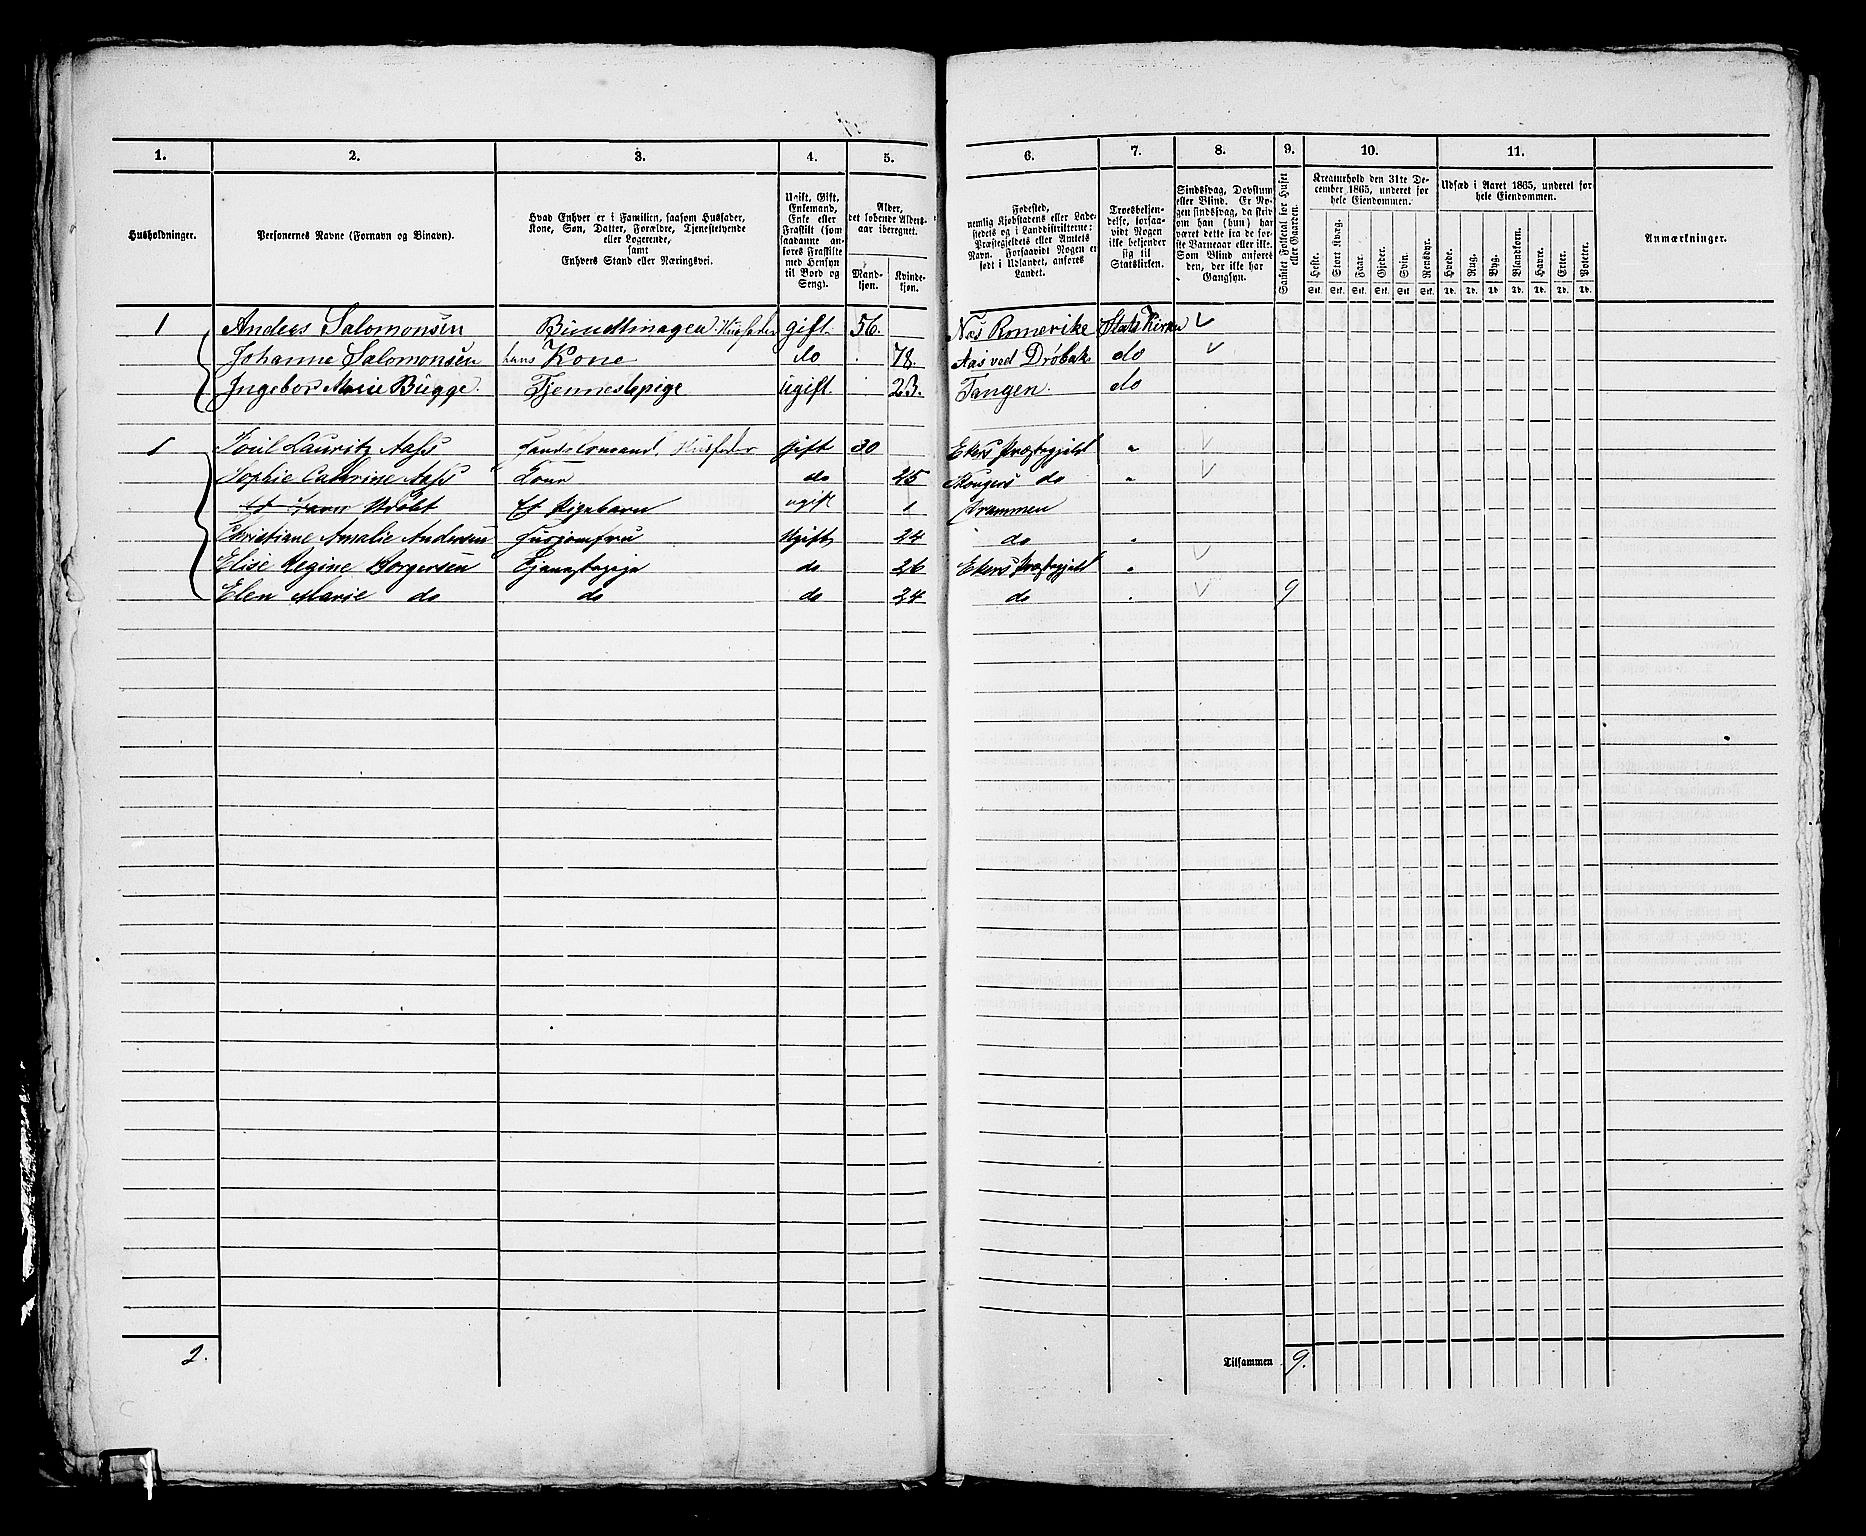 1. 2. 3. 4. 5. 6. 7. 8. 9. 10. 11.
Husholdninger.
Personernes Navne (Fornavn og Binavn).
Hvad Enhver er i Familien, saasom Husfader,
Kone, Søn, Datter, Forældre, Tjenestetyende
eller Logerende,
samt
Enhvers Stand eller Næringsvei.
Ugift, Gift,
Enkemand,
Enke eller
Fraskilt (som
saadanne an-
føres Fraskilte
med Hensyn
til Bord og
Seng).
Alder,
det løbende Alders-
aar iberegnet.
Mand-
kjøn.
Kvinde-
kjøn.
Fødested,
nemlig Kjøbstadens eller Lade-
stedets og i Landdistrikterne:
Præstegjeldets eller Amtets
Navn. Forsaavidt Nogen er
født i Udlandet, anføres
Landet.
Troesbekjen-
delse, forsaa-
vidt Nogen
ikke bekjender
sig til
Statskirken.
Sindssvag, Døvstum
eller Blind. Er No-
gen sindssvag, da skriv
om han (hun) har
været dette fra de før-
ste Barneaar eller ikke.
Som Blind anføres
den, der ikke har
Gangsyn.
Samlet Folketal for Huset
eller Gaarden.
Kreaturhold den 31te De-
cember 1865, underet for
hele Eiendommen.
Heste. Stort Kvæg. Faar. Gjeder. Svin. Rensdyr.
Stk. Stk. Stk. Stk. Stk. Stk.
Udsæd i Aaret 1865, underet for
hele Eiendommen.
Hvede. Rug. Byg. Blandkorn. Havre. Erter. Poteter.
Td. Td. Td. Td. Td. Td. Td.
Anmærkninger.
1 Anders Salomonsen Husfader gift. 56. Næs Romerike Stats Kirken
Johanne Salomonsen hans Kone do 78. Aas ved Drøbak do
Ingebor Marie Bugge. Tjennestepige ugift. 23. Tangen. do
1 Lauritz Aass Husfader Gift 30 Ekers Præstegjeld "
Sophie Catrine Aass Kone do 25 Skougers do "
Et Pigebarn ugift 1 Drammen
Christiane Amalie Andersen Husjomfru Ugift 24 do "
Elise Regine Borgersen Tjenestepige do 26 Ekers Præstegjeld "
Elen Marie do do do 24 do " 9
2. Tilsammen 9.